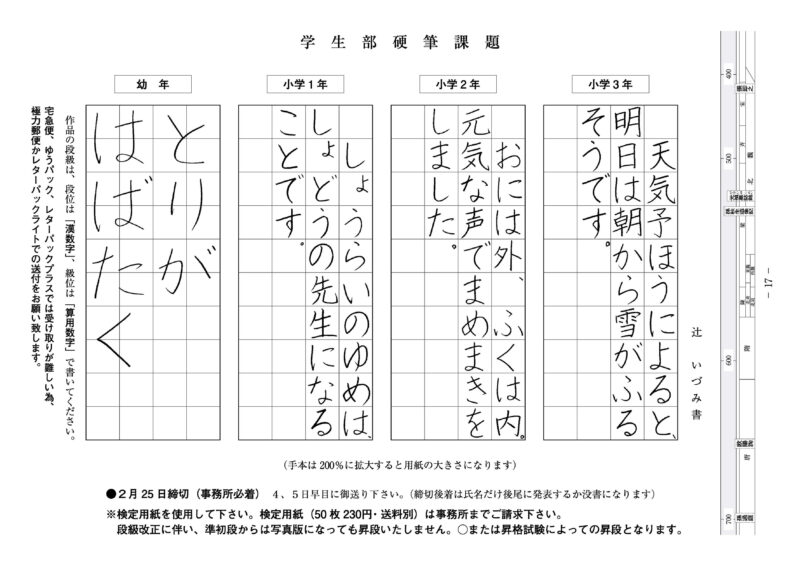 学生部硬筆課題
小学3年
天気予ほうによると、
明日は朝から雪がふる
そうです。
小学2年
おには外、ふくは内。
元気な声でまめまきを
しました。
小学1年
しょうらいのゆめは、
しょどうの先生になる
ことです。
幼年
とりが
はばたく
辻 いづみ書
作品の段級は、段位は「漢数字」、級位は「算用数字」で書いてください。
宅急便、ゆうパック、レターパックプラスでは受け取りが難しい為、
極力郵便かレターパックライトでの送付をお願い致します。
（手本は200％に拡大すると用紙の大きさになります）
●2月25日締切（事務所必着） 4、5日早目に御送り下さい。（締切後着は氏名だけ後尾に発表するか没書になります）
※検定用紙を使用して下さい。検定用紙（50枚230円・送料別）は事務所までご請求下さい。
段級改正に伴い、準初段からは写真版になっても昇段いたしません。○または昇格試験によっての昇段となります。
－17－
400
500
600
700
北 魏
隋
唐